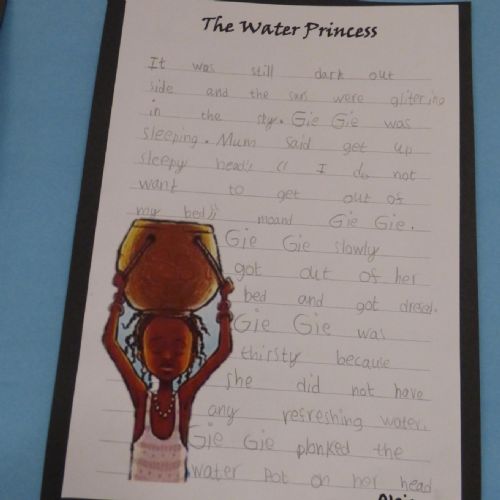 The Water Princess
It was still dark out
side and the sars were glitering
in the sky. Gie Gie was
sleeping. Mum said get up
sleepy head". " I do not
want to get out of
my bed" moand Gie Gie.
Gie Gie slowly
got out of her
bed and got dresed.
Gie Gie was
thirsty because
She did not have
any refreshing water.
Gie Gie plonked the
water Pot on her head